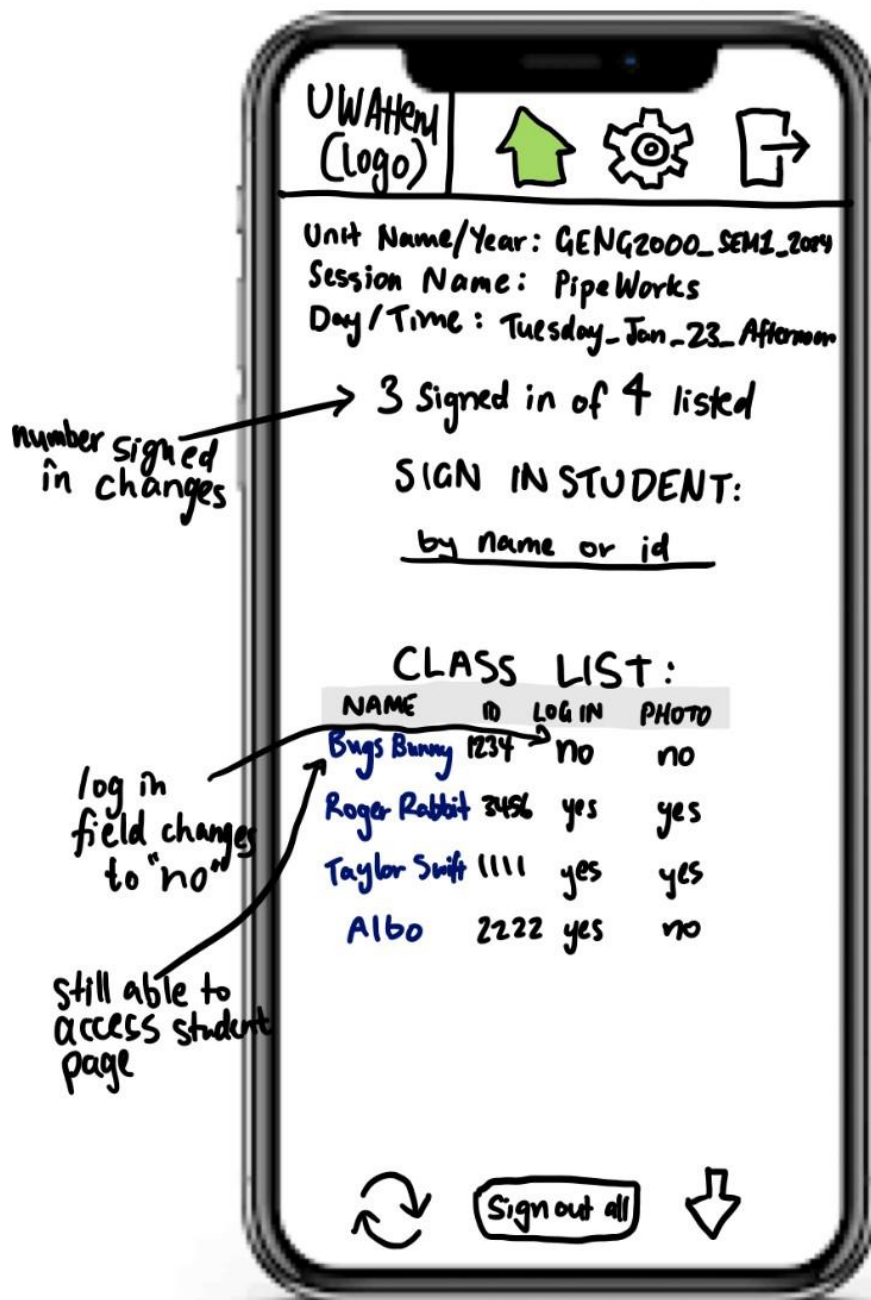 UWAttend
(Logo)
Unit Name/Year: GENG2000_SEM1_2024
Session Name: PipeWorks
Day/Time: Tuesday_Jan_23_Afternoon
3 Signed in of 4 listed
number signed
in changes
SIGN IN STUDENT:
by name or id
CLASS LIST:
NAME ID LOG IN PHOTO
Bugs Bunny 1234 no no
Roger Rabbit 3456 yes yes
Taylor Swift 1111 yes yes
Albo 2222 yes no
log in
field changes
to "no"
still able to
access student
page
Sign out all